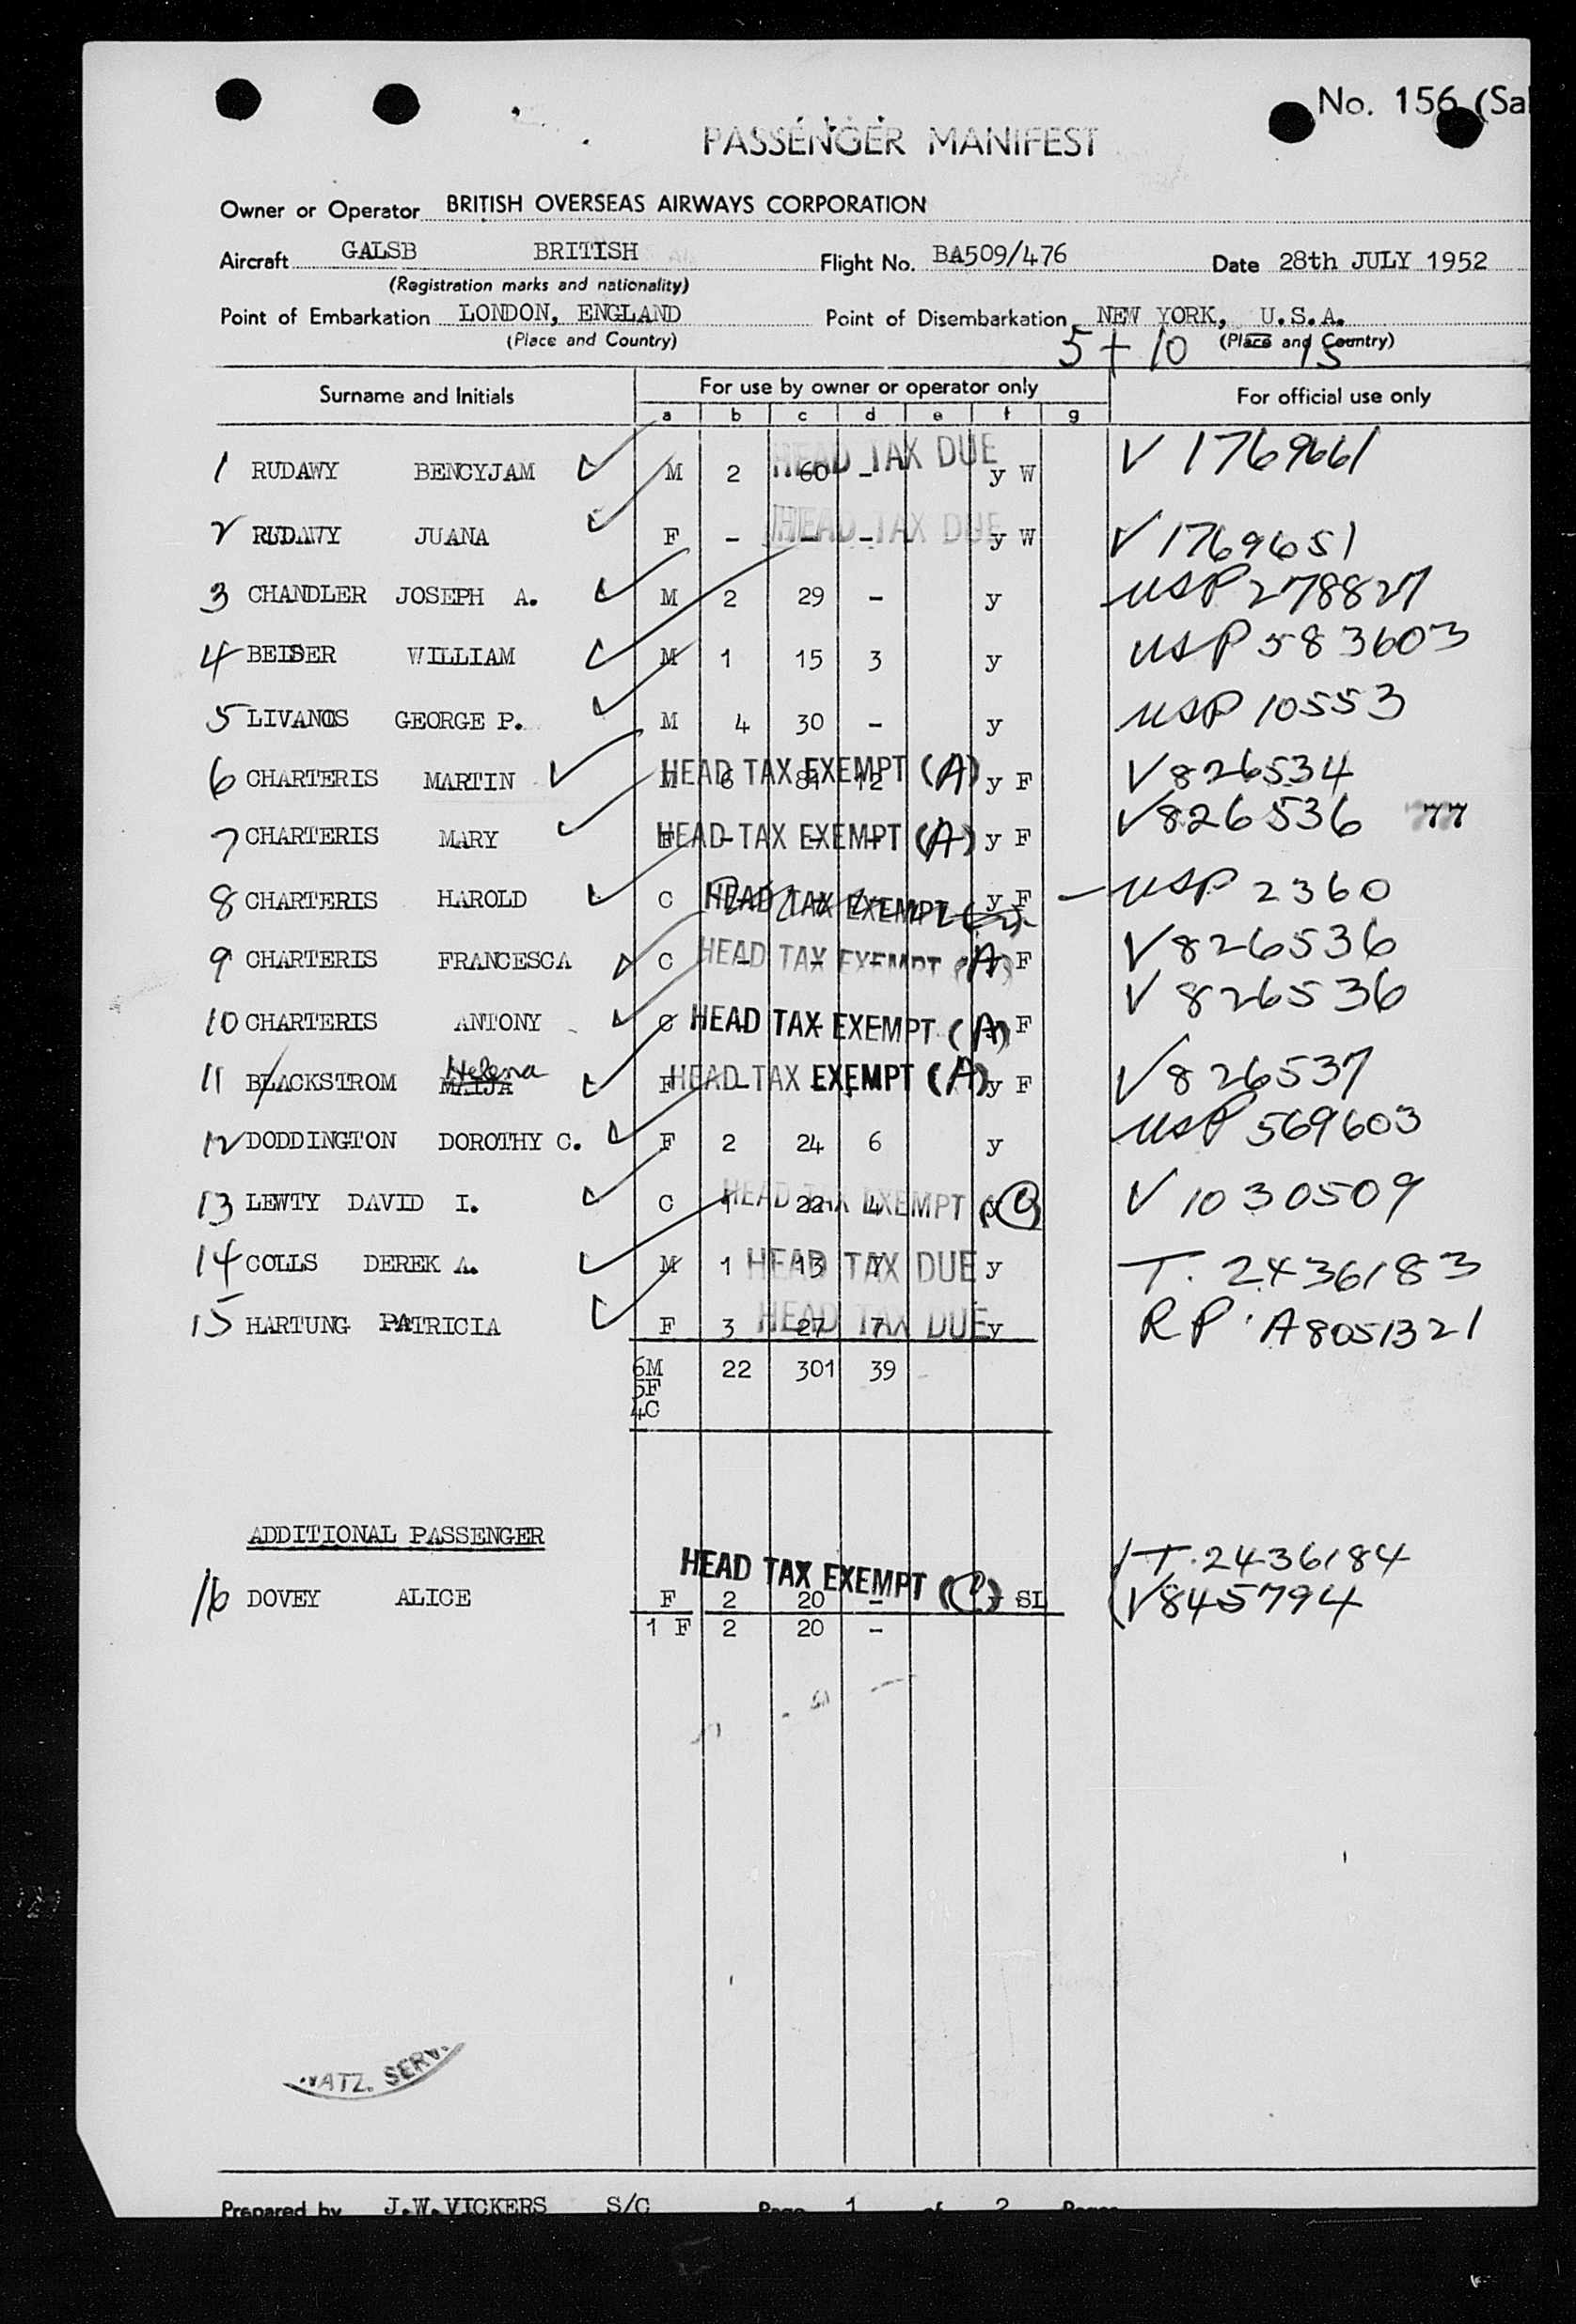 No. 156 (Sal
PASSENGER MANIFEST
Owner or Operator BRITISH OVERSEAS AIRWAYS CORPORATION
Aircraft GALSB BRITISH Flight No. BA509/476 Date 28th JULY 1952
(Registration marks and nationality)
Point of Embarkation LONDON, ENGLAND Point of Disembarkation NEW YORK, U.S.A.
(Place and Country) 5 + 10 (Place and Country) 15
Surname and Initials For use by owner or operator only For official use only
a b c d e f g
1 RUDAWY BENCYJAM M 2 60 - HEAD TAX DUE y W V 1769661
2 RUDAWY JUANA F - - - HEAD TAX DUE y W V 1769651
3 CHANDLER JOSEPH A. M 2 29 - y USP 278827
4 BEISER WILLIAM M 1 15 3 y USP 583603
5 LIVANOS GEORGE P. M 4 30 - y USP 10553
6 CHARTERIS MARTIN M 6 81 12 HEAD TAX EXEMPT (A) y F V 826534
7 CHARTERIS MARY F - - - HEAD TAX EXEMPT (A) y F V 826536 77
8 CHARTERIS HAROLD C HEAD TAX EXEMPT y F - USP 2360
9 CHARTERIS FRANCESCA C - - - HEAD TAX EXEMPT (A) F V 826536
10 CHARTERIS ANTONY C - - - HEAD TAX EXEMPT (A) F V 826536
Helena
11 BLACKSTROM MAIJA F - HEAD TAX EXEMPT (A) y F V 826537
12 DODDINGTON DOROTHY C. F 2 24 6 y USP 569603
13 LEWTY DAVID I. C 1 22 4 HEAD TAX EXEMPT y V 1030509
14 COLLS DEREK A. M 1 13 7 HEAD TAX DUE y T. 2436183
15 HARTUNG PATRICIA F 3 27 7 HEAD TAX DUE y R P. A8051321
6M 22 301 39
5F
4C
ADDITIONAL PASSENGER
HEAD TAX EXEMPT T. 2436184
16 DOVEY ALICE F 2 20 - SL V 845794
1 F 2 20 -
NATZ. SERV.
Prepared by J.W.VICKERS S/C Page 1 of 2 Pages